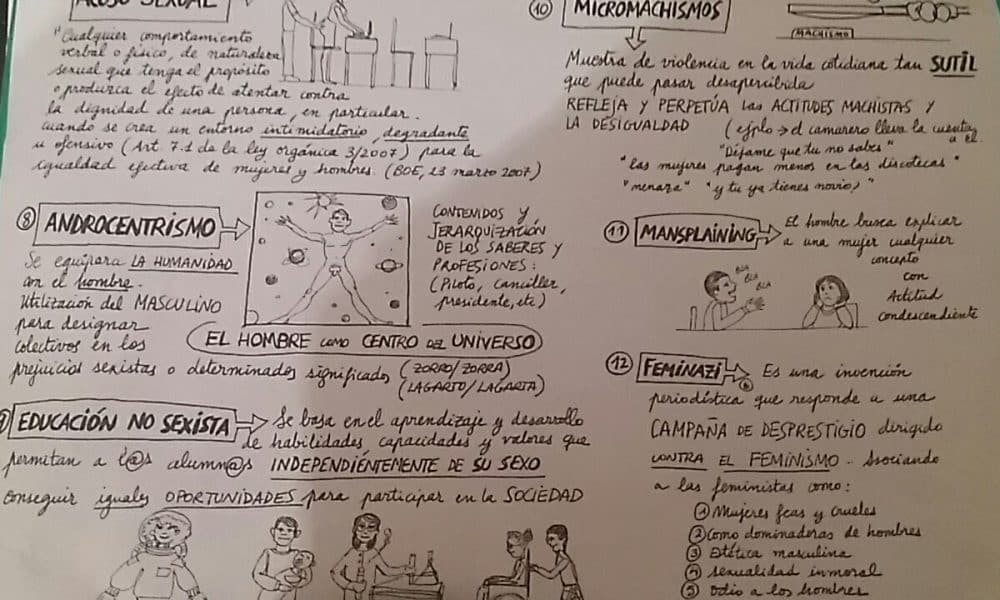 ACOSO SEXUAL
"Cualquier comportamiento
verbal o físico, de naturaleza
sexual que tenga el propósito
o produzca el efecto de atentar contra
la dignidad de una persona, en particular
cuando se crea un entorno intimidatorio, degradante
u ofensivo (Art 7.1 de la ley orgánica 3/2007) para la
igualdad efectiva de mujeres y hombres. (BOE, 23 marzo 2007)
⑧ ANDROCENTRISMO
Se equipara LA HUMANIDAD
con el hombre.
Utilización del MASCULINO
para designar
colectivos en los
prejuicios sexistas o determinados significados (ZORRO/ZORRA)
(LAGARTO/LAGARTA)
CONTENIDOS Y
JERARQUIZACIÓN
DE LOS SABERES Y
PROFESIONES:
(Piloto, canciller,
presidente, etc)
EL HOMBRE como CENTRO DEL UNIVERSO
9 EDUCACIÓN NO SEXISTA
Se basa en el aprendizaje y desarrollo
de habilidades, capacidades y valores que
permitan a l@s alumn@s INDEPENDIÉNTEMENTE DE SU SEXO
conseguir iguales OPORTUNIDADES para participar en la SOCIEDAD
⑩ MICROMACHISMOS
MACHISMO
Muestra de violencia en la vida cotidiana tan SUTIL
que puede pasar desapercibida
REFLEJA Y PERPETÚA las ACTITUDES MACHISTAS Y
LA DESIGUALDAD (ejplo → el camarero lleva la cuenta
a él.
"Déjame que tu no sabes"
"las mujeres pagan menos en las discotecas"
"menaza" "y tu ya tienes novio?"
⑪ MANSPLAINING
El hombre busca explicar
a una mujer cualquier
concepto
con
Actitud
condescendiente
BLA
BLA
BLA
⑫ FEMINAZI
Es una invención
periodística que responde a una
CAMPAÑA DE DESPRESTIGIO dirigido
CONTRA EL FEMINISMO. Asociando
a las feministas como:
① Mujeres feas y crueles
② Como dominadoras de hombres
③ Estética masculina
④ Sexualidad inmoral
⑤ Odio a los hombres